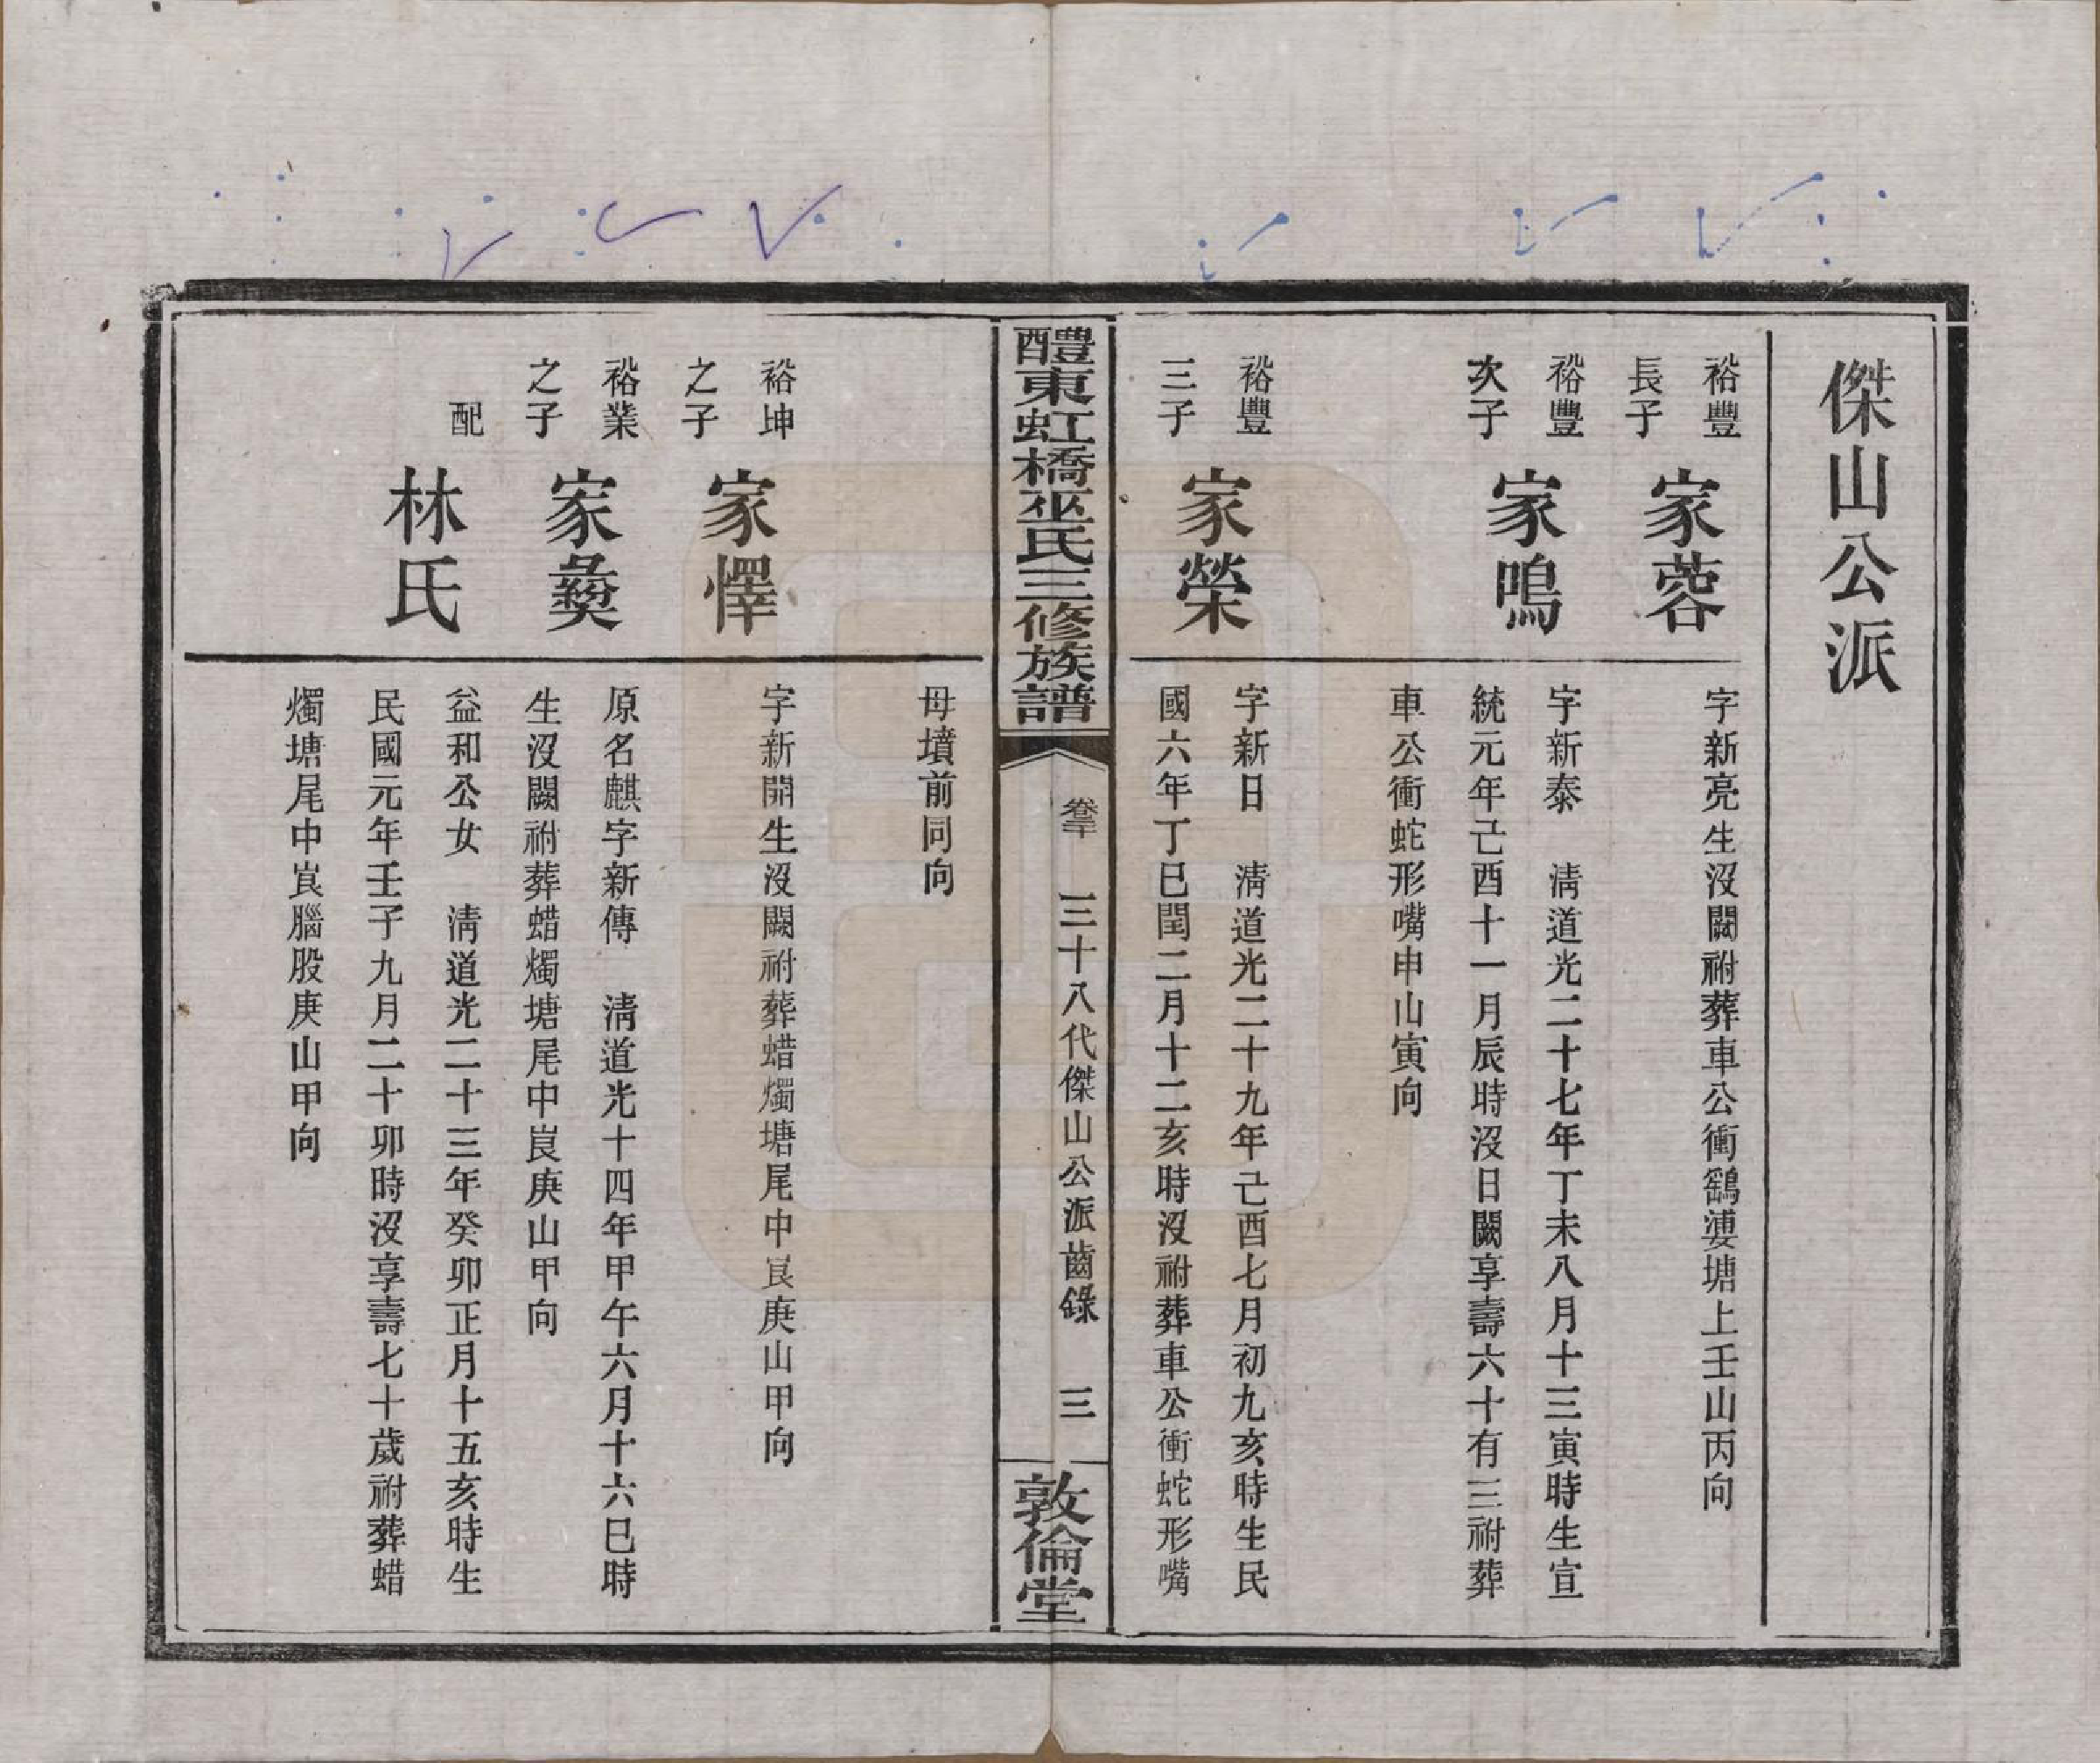 傑山公派
裕豐
長子
家蓉
字新亮生沒闕祔葬車公衝鷂婆塘上壬山丙向
裕豐
次子
家鳴
字新泰　清道光二十七年丁未八月十三寅時生宣
統元年己酉十一月辰時沒日闕享壽六十有三祔葬
車公衝蛇形嘴申山寅向
裕豐
三子
家榮
字新日　清道光二十九年己酉七月初九亥時生民
國六年丁巳閏二月十二亥時沒祔葬車公衝蛇形嘴
醴東虹橋巫氏三修族譜
卷
三十八代傑山公派齒錄
三
敦倫堂
母墳前同向
裕坤
之子
家懌
字新開生沒闕祔葬蜡燭塘尾中崀庚山甲向
裕業
之子
家彝
原名麒字新傳　清道光十四年甲午六月十六巳時
生沒闕祔葬蜡燭塘尾中崀庚山甲向
配
林氏
益和公女　清道光二十三年癸卯正月十五亥時生
民國元年壬子九月二十卯時沒享壽七十歲祔葬蜡
燭塘尾中崀腦股庚山甲向